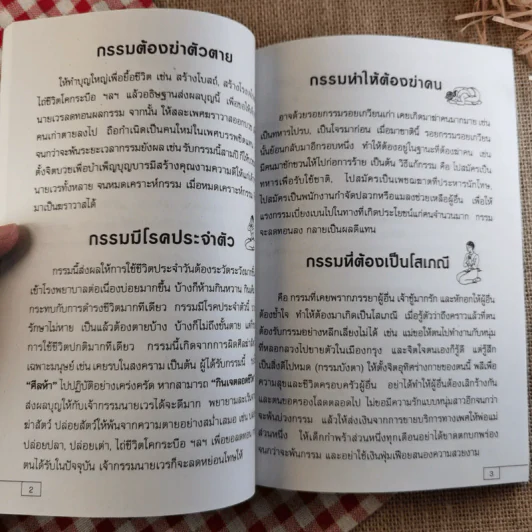 กรรมต้องฆ่าตัวตาย
ให้ทำบุญใหญ่เพื่อยื้อชีวิต เช่น สร้างโบสถ์, สร้าง
ไถ่ชีวิตโคกระบือ ฯลฯ แล้วอธิษฐานส่งผลบุญนี้ เพื่อขอให้
นายเวรลดทอนผลกรรม จากนั้น ให้สละเพศฆราวาสออก
คนเก่าตายลงไป ถือกำเนิดเป็นคนใหม่ในเพศบรรพชิต
จนกว่าจะพ้นระยะเวลากรรมยังผล เช่น รับกรรมนี้สามปี ก็ให้
ตั้งจิตบวชเพื่อบำเพ็ญบุญบารมีสร้างคุณงามความดีให้แก่
นายเวรทั้งหลาย จนหมดเคราะห์กรรม เมื่อหมดเคราะห์กรรม
มาเป็นฆราวาสได้
กรรมมีโรคประจำตัว
กรรมนี้ส่งผลให้การใช้ชีวิตประจำวันต้องระวัดระวัง
เข้าโรงพยาบาลต่อเนื่องบ่อยมากขึ้น บ้างก็ห้ามกินหวาน
กระทบกับการดำรงชีวิตมากทีเดียว กรรมมีโรคประจำตัวนี้
รักษาไม่หาย เป็นแล้วต้องตายบ้าง บ้างก็ไม่ถึงขั้นตาย แต่
การใช้ชีวิตปกติมากทีเดียว กรรมนี้เกิดจากการผิดศีล
เฉพาะมนุษย์ เช่น เคยรบในสงคราม เป็นต้น ผู้ได้รับกรรมนี้
"ศีลห้า" ไปปฏิบัติอย่างเคร่งครัด หากสามารถ "กินเจตลอด
ส่งผลบุญให้กับเจ้ากรรมนายเวรได้จะดีมาก พยายามละเว้น
ฆ่าสัตว์ ปล่อยสัตว์ให้พ้นจากความตายอย่างสม่ำเสมอ เช่น
ปล่อยปลา, ปล่อยเต่า, ไถ่ชีวิตโคกระบือ ฯลฯ เพื่อขอลดทอน
ตนได้รับในปัจจุบัน เจ้ากรรมนายเวรก็จะลดหย่อนโทษให้
2
กรรมทำให้ต้องฆ่าคน
อาจด้วยรอยกรรมรอยเกวียนเก่า เคยเกิดมาฆ่าคนมากมาย เช่น
เป็นทหารไปรบ, เป็นโจรมาก่อน เมื่อมาชาตินี้ รอยกรรมรอยเกวียน
นั้นย้อนกลับมาอีกรอบหนึ่ง ทำให้ต้องอยู่ในฐานะที่ต้องฆ่าคน เช่น
มีคนมาชักชวนให้ไปก่อการร้าย เป็นต้น วิธีแก้กรรม คือ ไปสมัครเป็น
ทหารเพื่อรับใช้ชาติ, ไปสมัครเป็นเพชฌฆาตที่ประหารนักโทษ,
ไปสมัครเป็นพนักงานกำจัดปลวกหรือแมลงช่วยเหลือผู้อื่น เพื่อให้
แรงกรรมเบี่ยงเบนไปในทางที่เกิดประโยชน์แก่คนจำนวนมาก กรรม
จะลดทอนลง กลายเป็นผลดีแทน
กรรมที่ต้องเป็นโสเภณี
คือ กรรมที่เคยพรากภรรยาผู้อื่น เจ้าชู้มากรัก และหักอกให้ผู้อื่น
ต้องช้ำใจ ทำให้ต้องมาเกิดเป็นโสเภณี เมื่อรู้ตัวว่าถึงคราวแล้วที่ตน
ต้องรับกรรมอย่างหลีกเลี่ยงไม่ได้ เช่น แม่ขอให้ตนไปทำงานกับหนุ่ม
ที่หลอกลวงไปขายตัวในเมืองกรุง และจิตใจตนเองก็รู้ดี แต่รู้สึก
เป็นสิ่งดีไปหมด (กรรมบังตา) ให้ตั้งจิตอุทิศร่างกายของตนนี้ พลีเพื่อ
ความสุขและชีวิตครอบครัวผู้อื่น อย่าได้ทำให้ผู้อื่นต้องเลิกร้างกัน
และตนขอครองโสดตลอดไป ไม่ขอมีความรักแบบหนุ่มสาวอีกจนกว่า
จะพ้นบ่วงกรรม แล้วให้ส่งเงินจากการขายบริการทางเพศให้พ่อแม่
ส่วนหนึ่ง ให้เด็กกำพร้าส่วนหนึ่งทุกเดือนอย่าได้ขาดตกบกพร่อง
จนกว่าจะพ้นกรรม และอย่าใช้เงินฟุ่มเฟือยสนองความสวยงาม
3